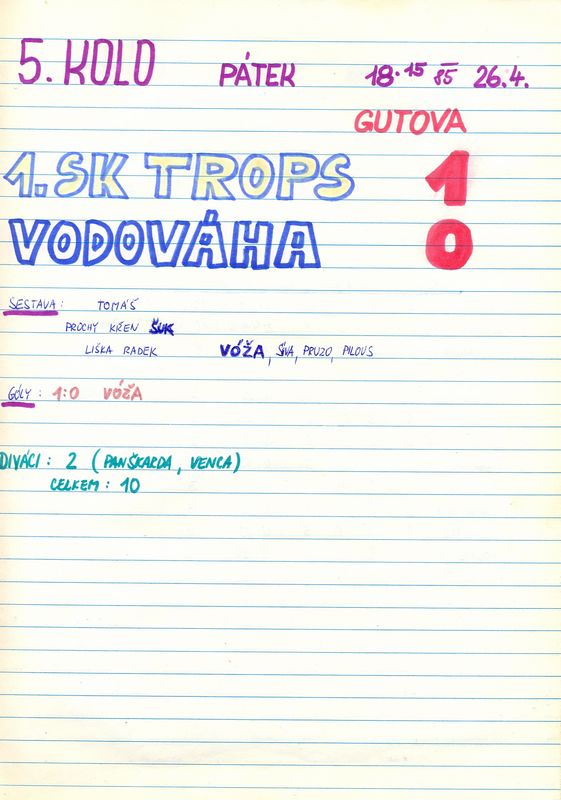 5. KOLO PÁTEK 18.15 85 26.4.
GUTOVA
1. SK TROPS 1
VODOVÁHA 0
SESTAVA: TOMÁŠ
PRŮCHY KŘEN ŠUK
LIŠKA RADEK VÓŽA, SÍVA, PRUZO, PILOUS
GÓLY: 1:0 VÓŽA
DIVÁCI: 2 (PANŠKARDA, VENCA)
CELKEM: 10